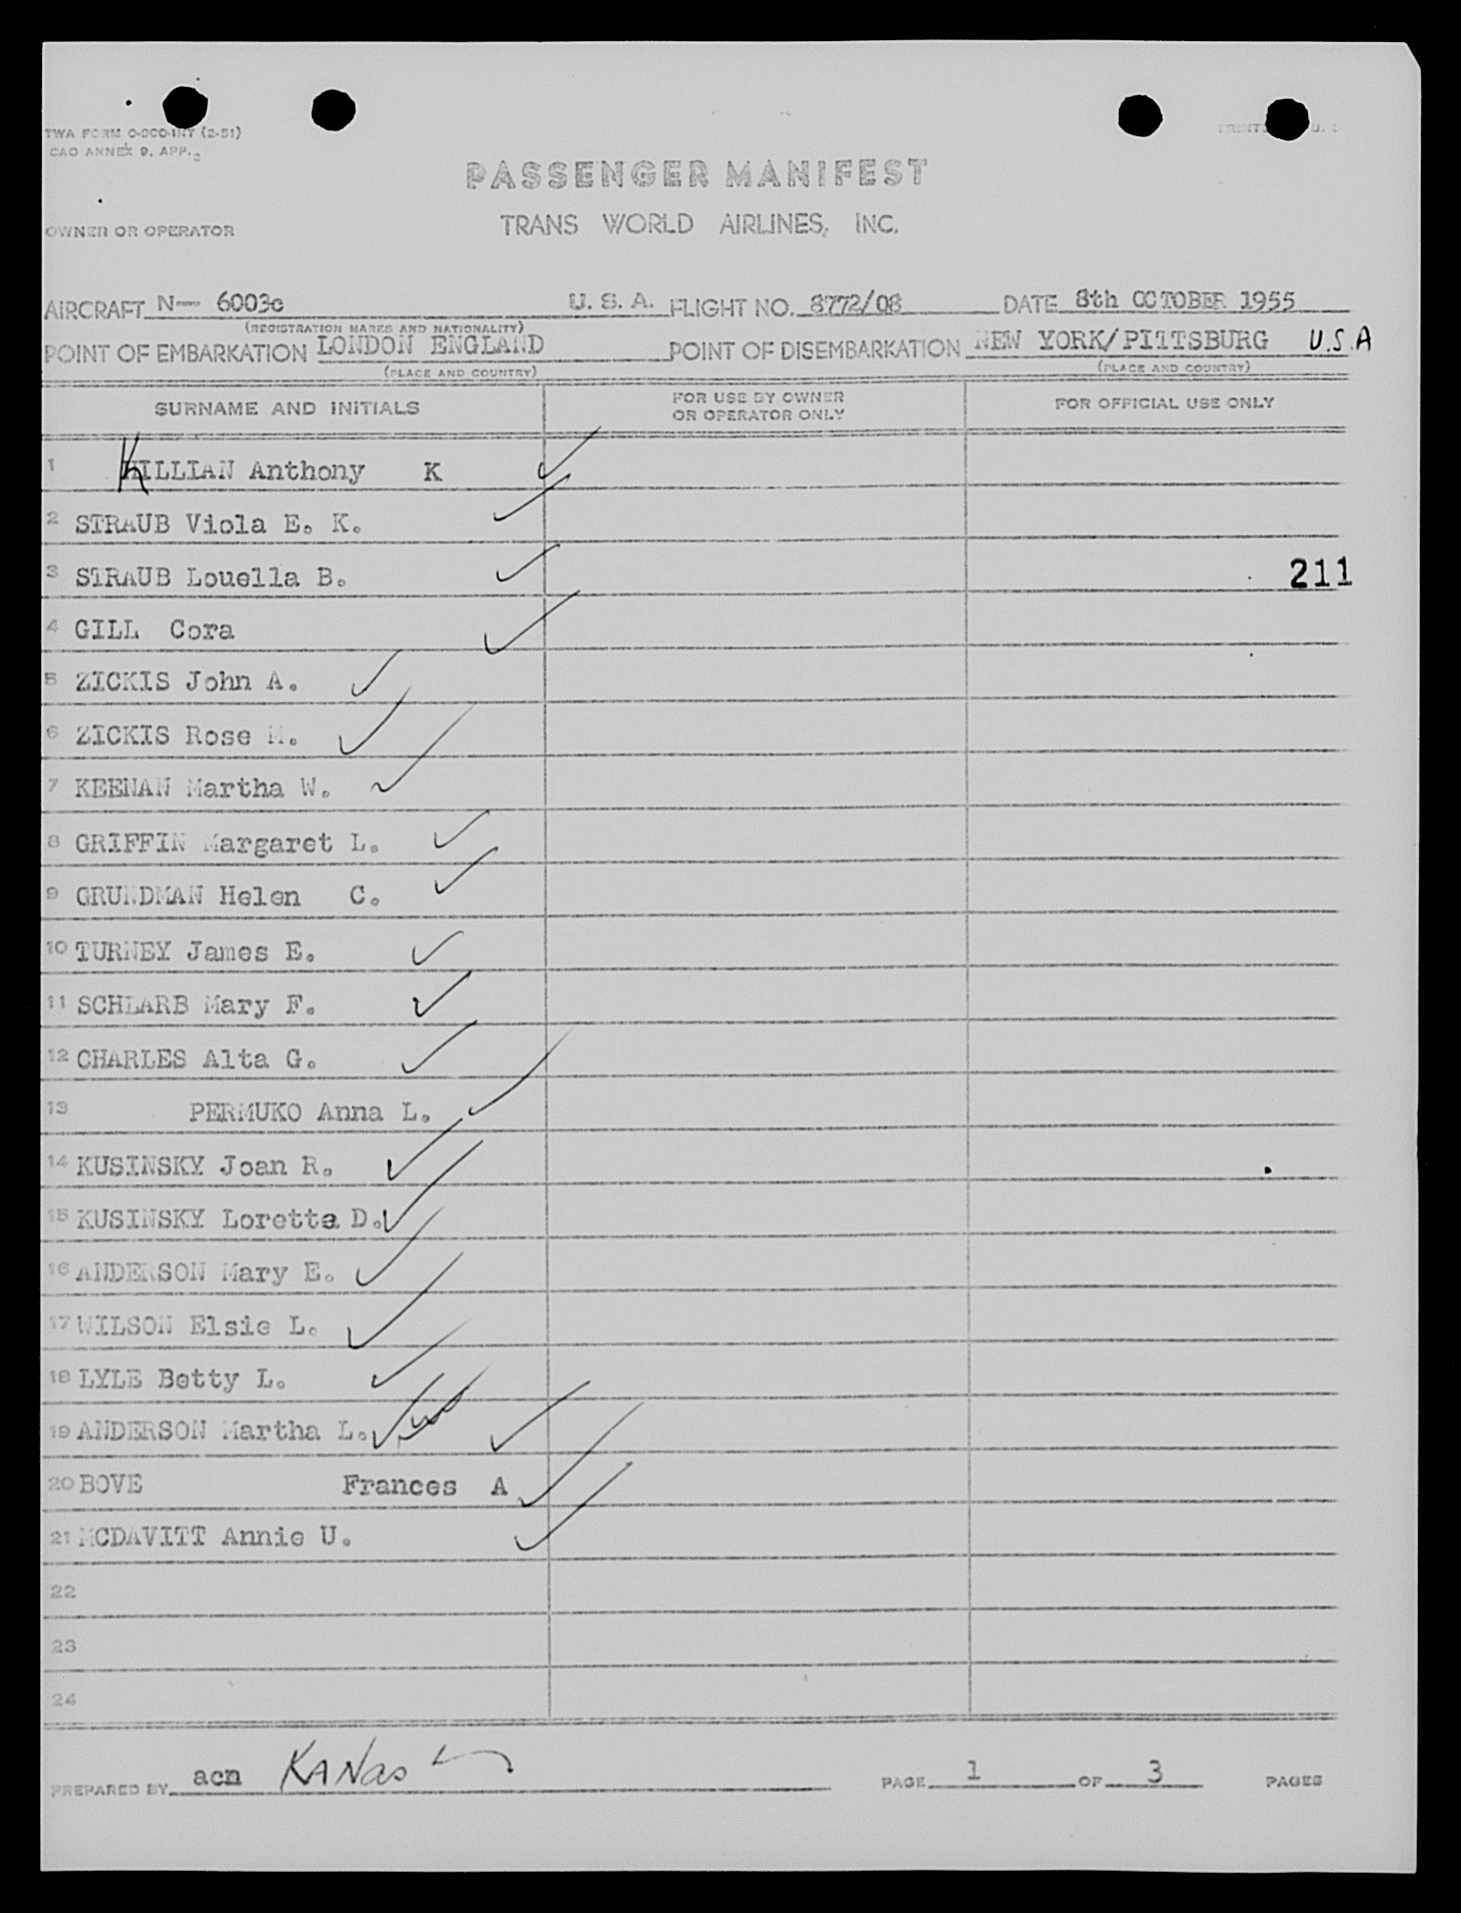 TWA FORM O-OCO-INT (2-51)
CAO ANNEX 9, APP. 2
PASSENGER MANIFEST
OWNER OR OPERATOR TRANS WORLD AIRLINES, INC.
AIRCRAFT N-- 6003c U. S. A. FLIGHT NO. 8772/08 DATE 8th OCTOBER 1955
(REGISTRATION MARKS AND NATIONALITY)
POINT OF EMBARKATION LONDON ENGLAND POINT OF DISEMBARKATION NEW YORK/PITTSBURG U.S.A
(PLACE AND COUNTRY) (PLACE AND COUNTRY)
SURNAME AND INITIALS FOR USE BY OWNER OR OPERATOR ONLY FOR OFFICIAL USE ONLY
1 KILLIAN Anthony K
2 STRAUB Viola E. K.
3 STRAUB Louella B. 211
4 GILL Cora
5 ZICKIS John A.
6 ZICKIS Rose M.
7 KEENAN Martha W.
8 GRIFFIN Margaret L.
9 GRUNDMAN Helen C.
10 TURNEY James E.
11 SCHLARB Mary F.
12 CHARLES Alta G.
13 PERMUKO Anna L.
14 KUSINSKY Joan R.
15 KUSINSKY Loretta D.
16 ANDERSON Mary E.
17 WILSON Elsie L.
18 LYLE Betty L.
19 ANDERSON Martha L.
20 BOVE Frances A
21 MCDAVITT Annie U.
22
23
24
PREPARED BY acn PAGE 1 OF 3 PAGES